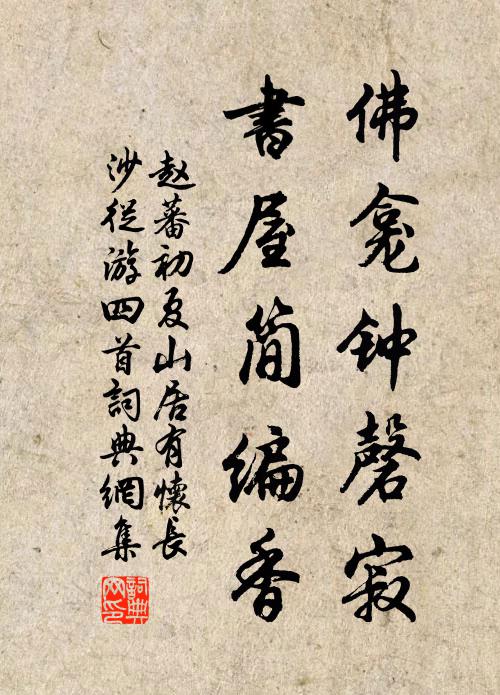 佛龛钟磬寂
書屋简编香
赵蕃初夏山居有懷長
沙從游四首詞典網集
詞典
网印